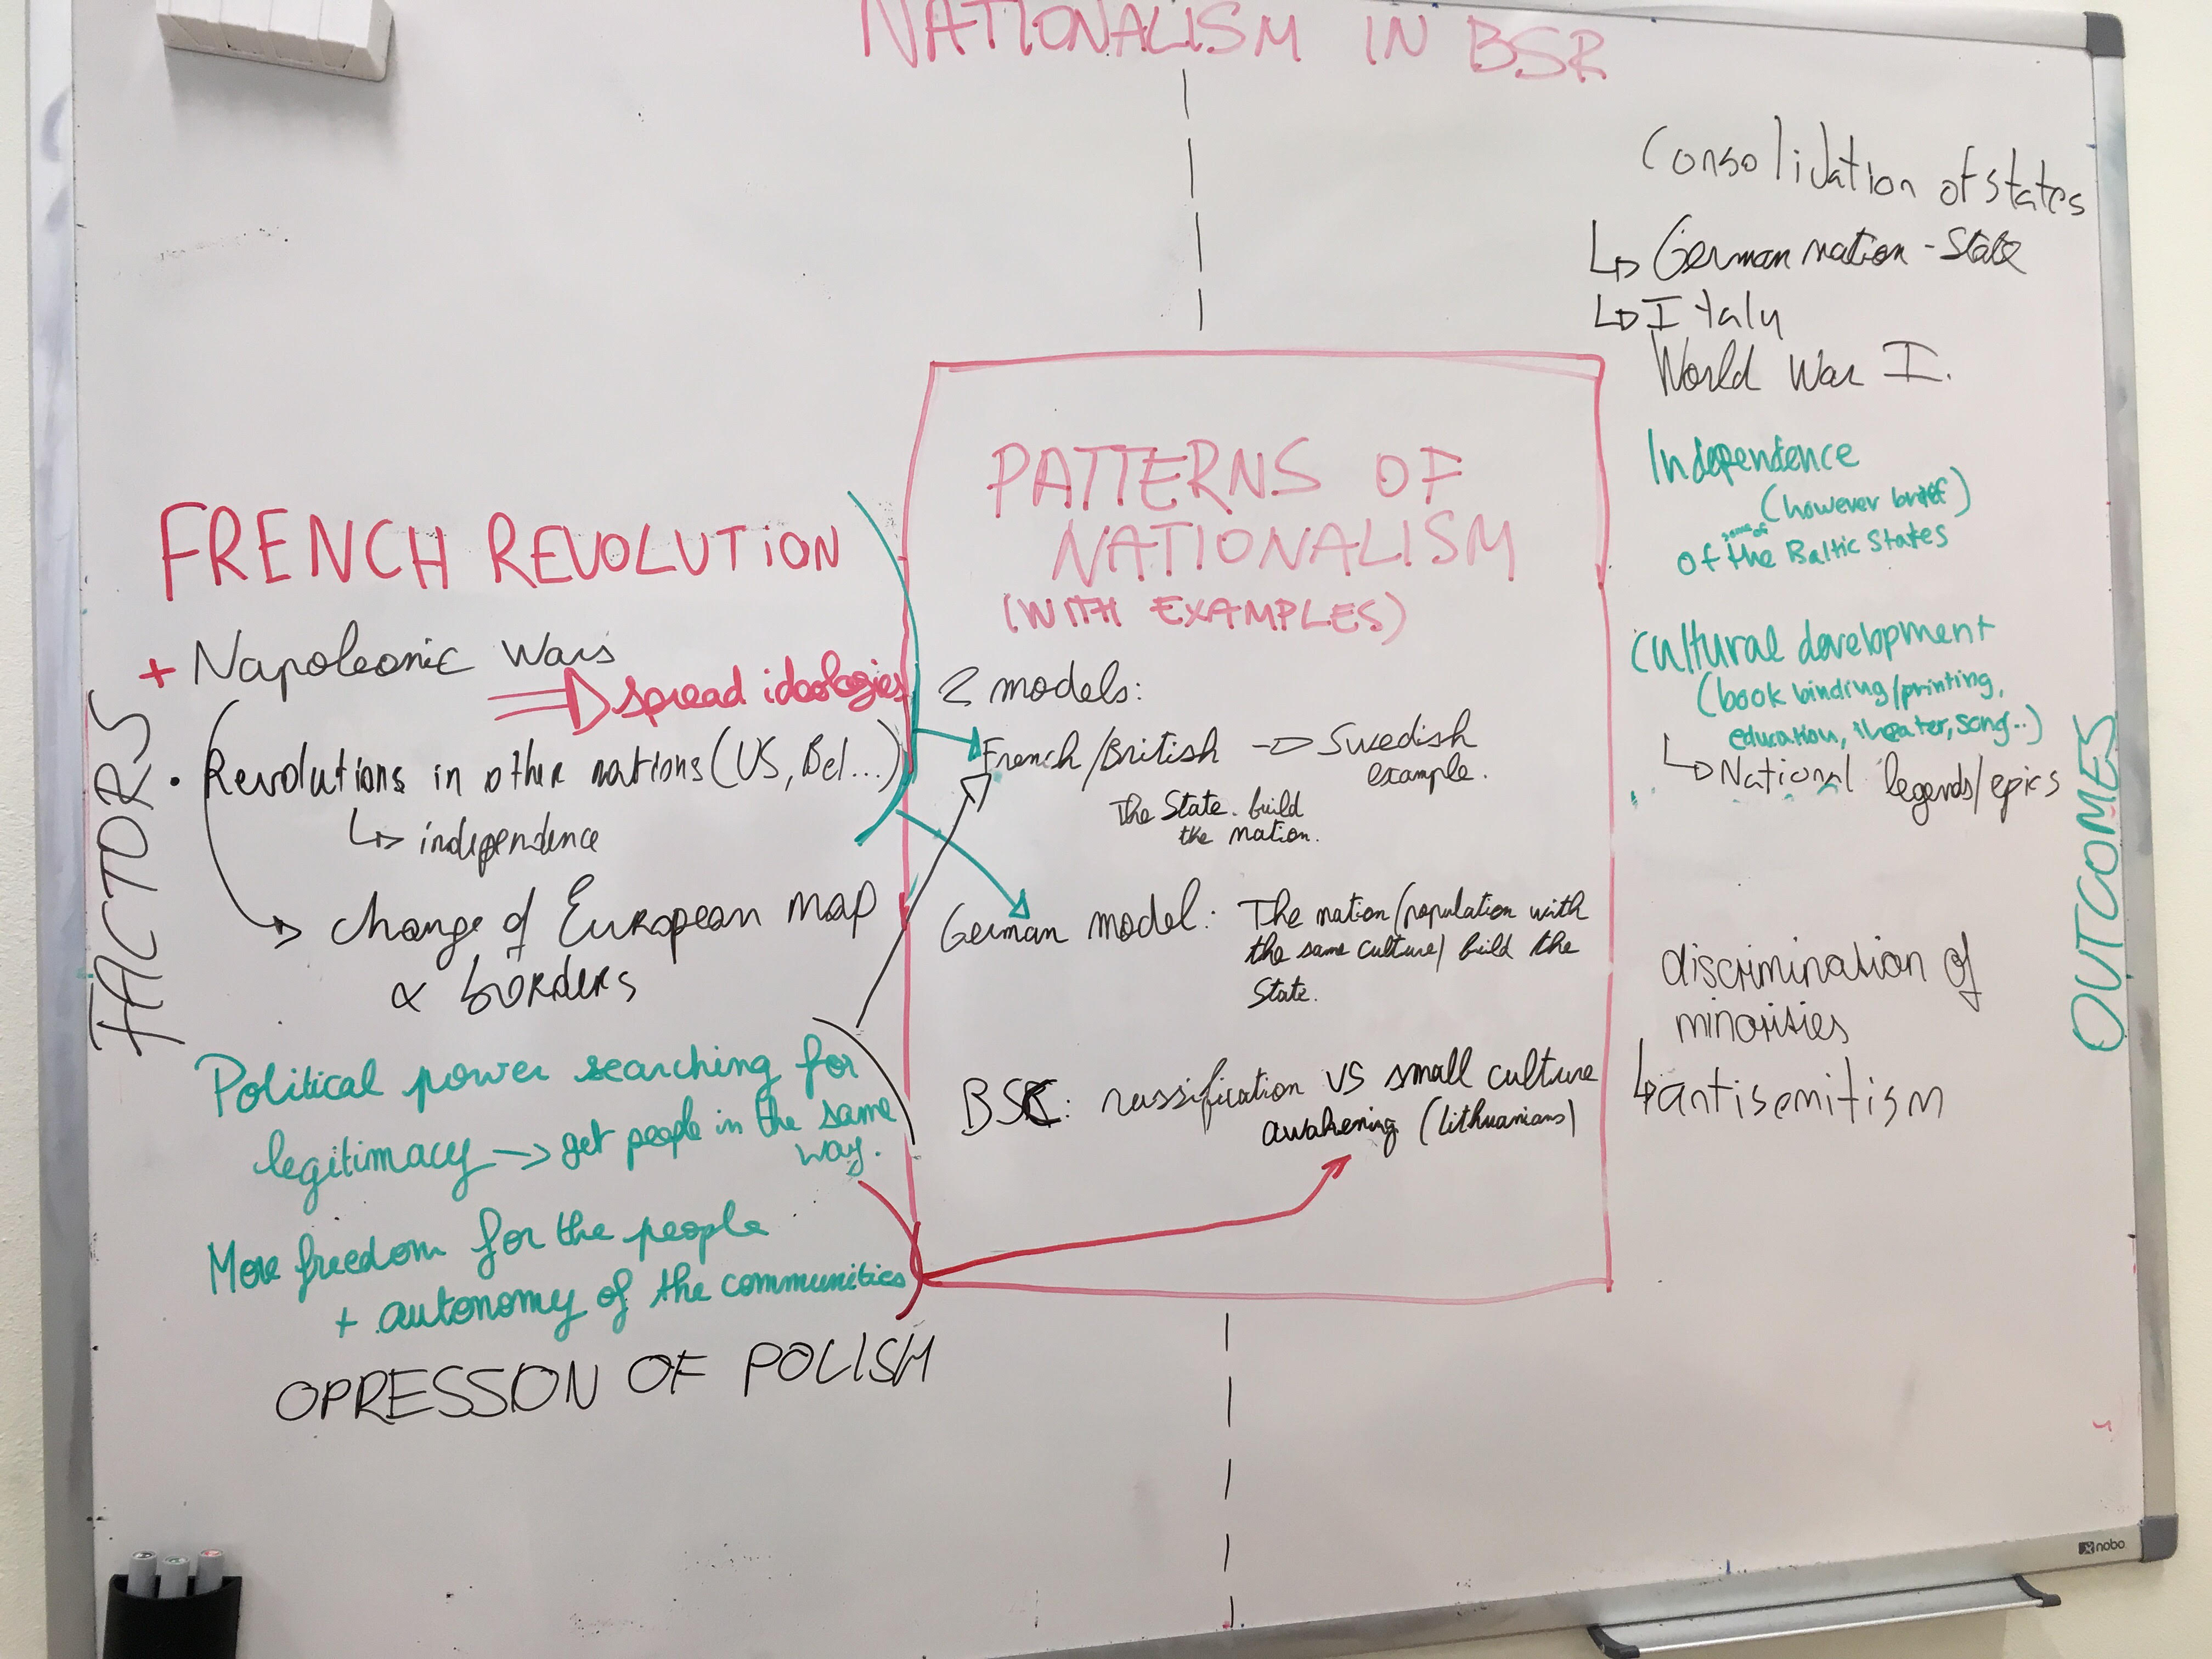 NATIONALISM IN BSR
FACTORS
FRENCH REVOLUTION
+ Napoleonic Wars
⇒ spread ideologies
• Revolutions in other nations (US, Bel...)
↳ independence
→ change of European map
& borders
Political power searching for
legitimacy → get people in the same
way.
More freedom for the people
+ autonomy of the communities
OPRESSION OF POLISH
PATTERNS OF
NATIONALISM
(WITH EXAMPLES)
2 models:
French/British → Swedish
example.
The State build
the nation.
German model: The nation (population with
the same culture) build the
State.
BSR: russification VS small culture
awakening (lithuanians)
Consolidation of states
↳ German nation-State
↳ Italy
World War I.
Independence
(however brief)
some of
of the Baltic States
Cultural development
(book binding/printing,
education, theater, song..)
↳ National legends/epics
discrimination of
minorities
↳ antisemitism
OUTCOMES
nobo